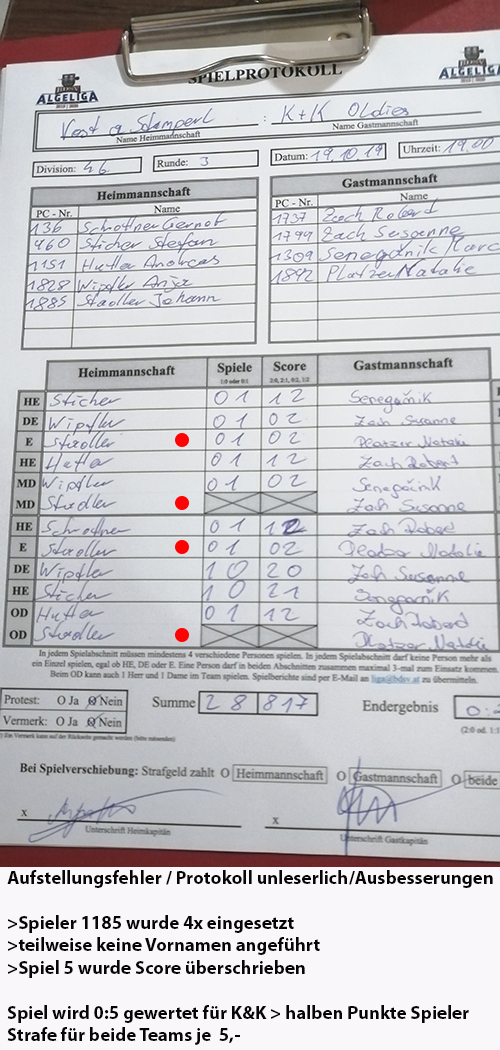 ALGELIGA
SPIELPROTOKOLL
ALGELIGA
Vest a Stamperl : K+K Oldies
Name Heimmannschaft Name Gastmannschaft
Division: 4b. Runde: 3 Datum: 19.10.19 Uhrzeit: 19.00
Heimmannschaft Gastmannschaft
PC - Nr. Name PC - Nr. Name
136 Schottner Gernot 1737 Zach Robert
960 Sticher Stefan 1794 Zach Susanne
1151 Hutla Andreas 1309 Senegačnik Marc
1828 Wipfler Anja 1892 Platzer Natalie
1885 Stadler Johann
Heimmannschaft Spiele Score Gastmannschaft
1:0 oder 0:1 2:0, 2:1, 0:2, 1:2
HE Sticher 0 1 1 2 Senegačnik
DE Wipfler 0 1 0 2 Zach Susanne
E Stadler 0 1 0 2 Platzer Natalie
HE Hutla 0 1 1 2 Zach Robert
MD Wipfler 0 1 0 2 Senegačnik
MD Stadler Zach Susanne
HE Schottner 0 1 1 2 Zach Robert
E Stadler 0 1 0 2 Platzer Natalie
DE Wipfler 1 0 2 0 Zach Susanne
HE Sticher 1 0 2 1 Senegačnik
OD Hutla 0 1 1 2 Zach Robert
OD Stadler Platzer Natalie
In jedem Spielabschnitt müssen mindestens 4 verschiedene Personen spielen. In jedem Spielabschnitt darf keine Person mehr als
ein Einzel spielen, egal ob HE, DE oder E. Eine Person darf in beiden Abschnitten zusammen maximal 3-mal zum Einsatz kommen.
Beim OD kann auch 1 Herr und 1 Dame im Team spielen. Spielberichte sind per E-Mail an liga@bdsv.at zu übermitteln.
Protest: O Ja O Nein Summe 2 8 8 17 Endergebnis 0:
Vermerk: O Ja O Nein (2:0 od. 1:1
Ein Vermerk kann auf der Rückseite gemacht werden (bitte ankreuzen)
Bei Spielverschiebung: Strafgeld zahlt O Heimmannschaft O Gastmannschaft O beide
x x
Unterschrift Heimkapitän Unterschrift Gastkapitän
Aufstellungsfehler / Protokoll unleserlich/Ausbesserungen
>Spieler 1185 wurde 4x eingesetzt
>teilweise keine Vornamen angeführt
>Spiel 5 wurde Score überschrieben
Spiel wird 0:5 gewertet für K&K > halben Punkte Spieler
Strafe für beide Teams je 5,-